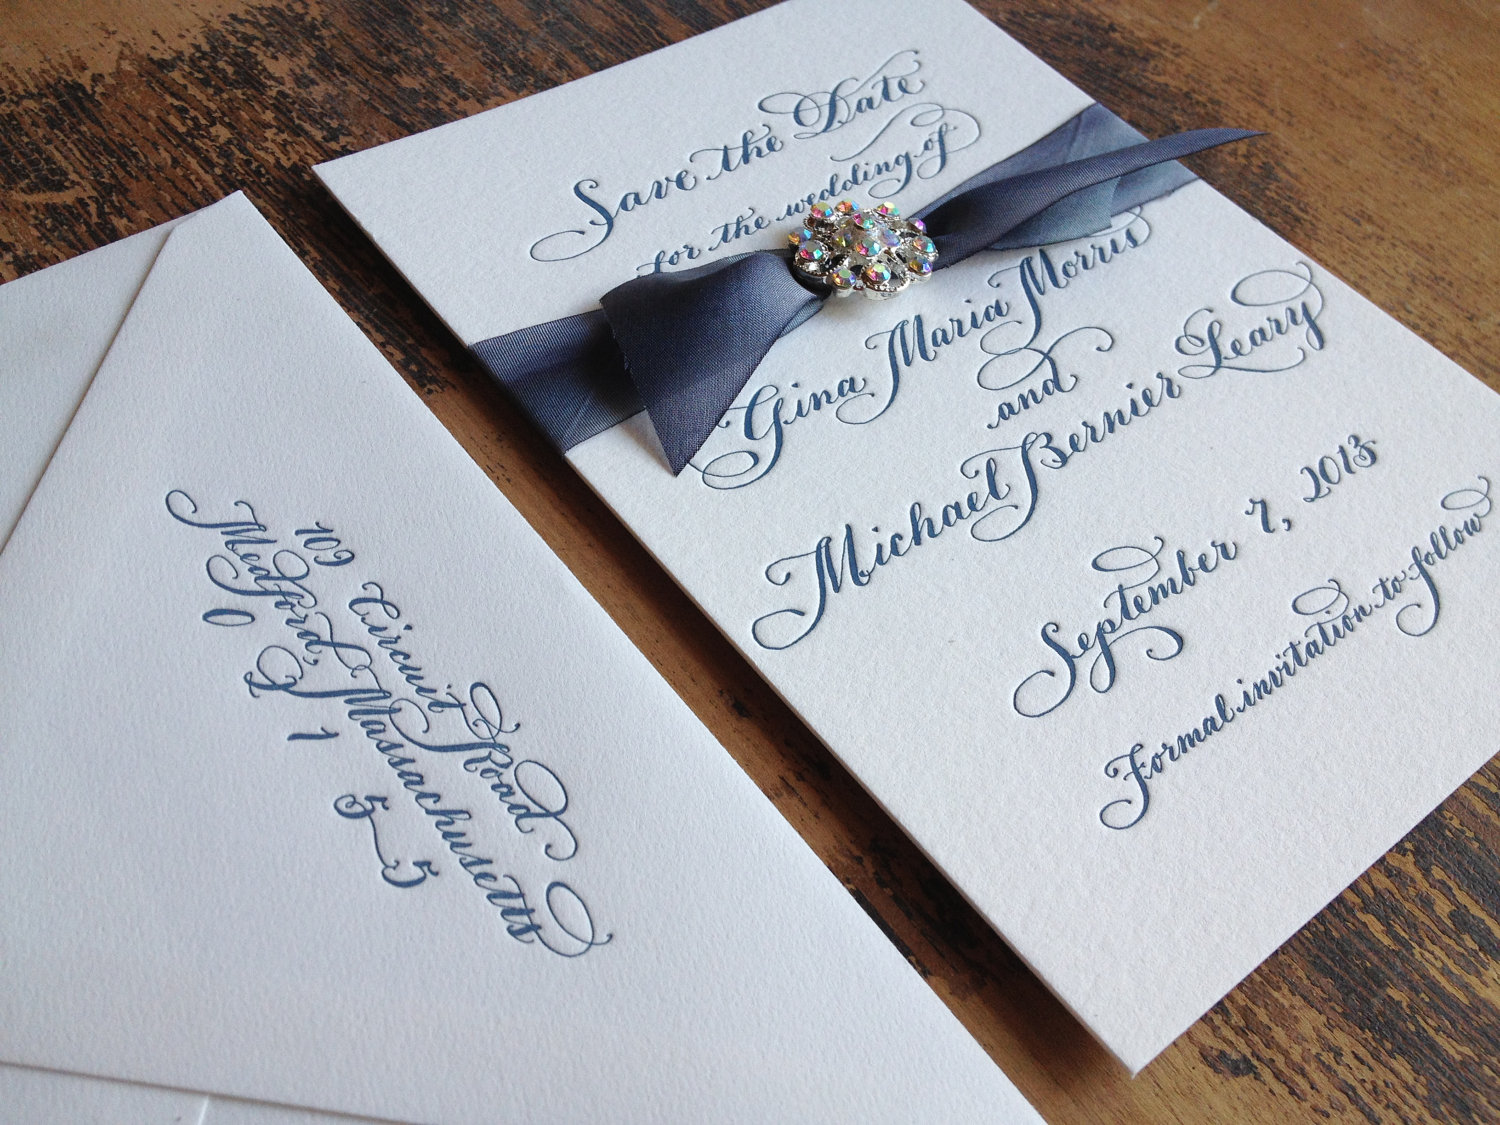 Save the Date
for the wedding of
Gina Maria Morris
and
Michael Bernier Leary
September 7, 2013
Formal invitation to follow
109 Circuit Road
Medford, Massachusetts
0 2 1 5 5